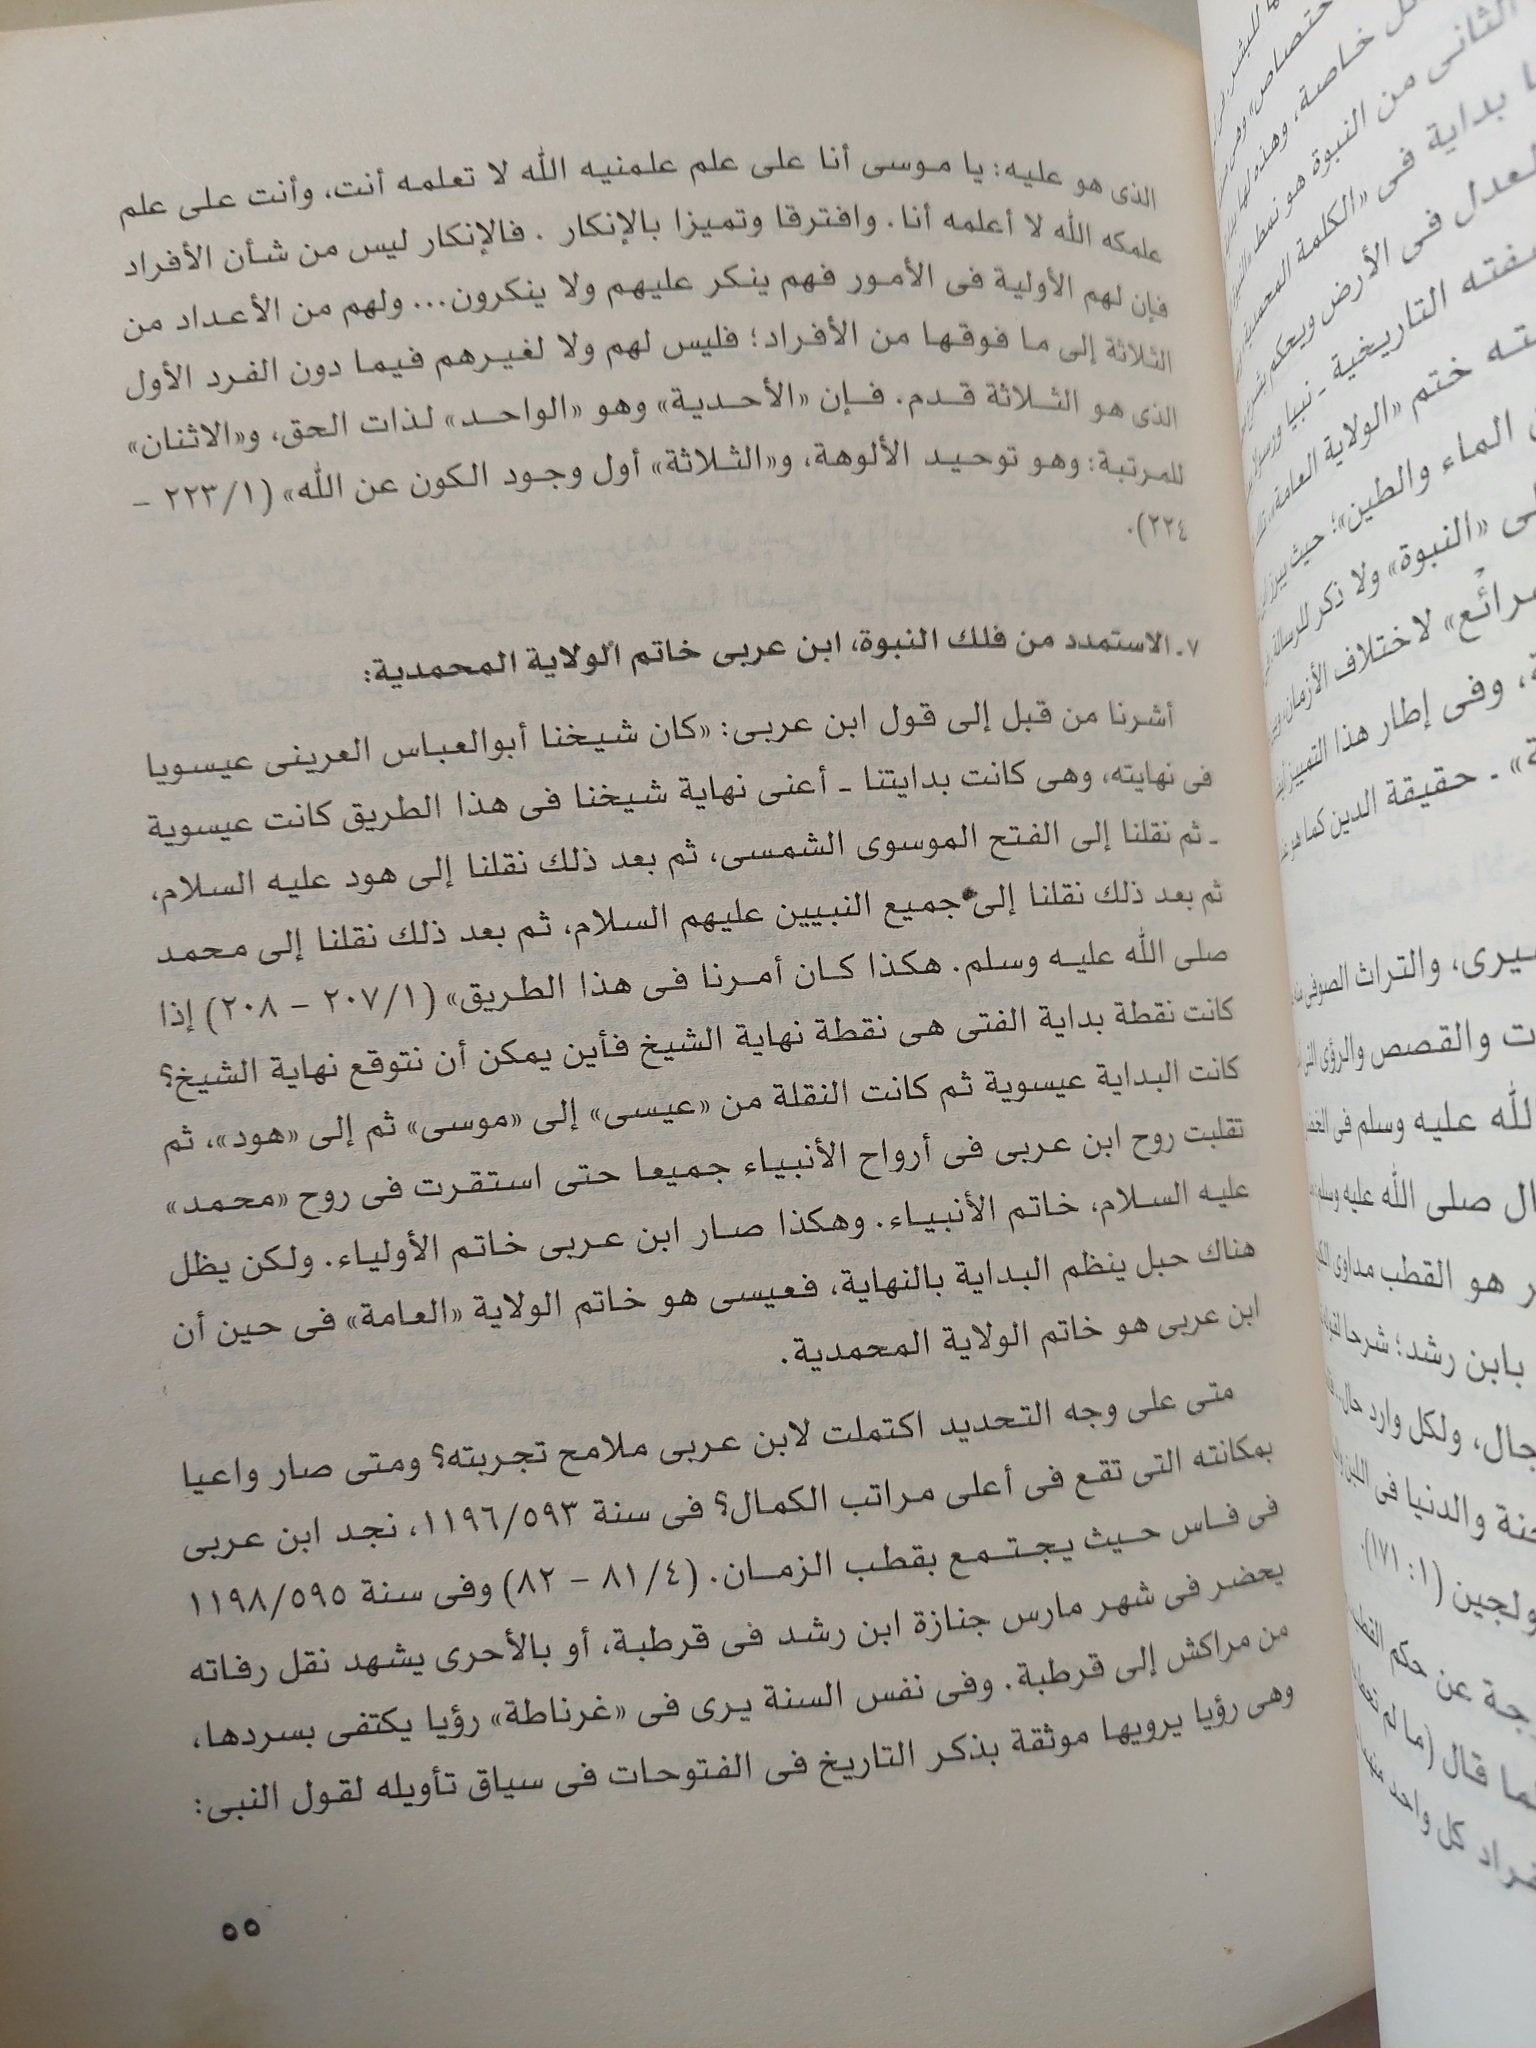 الذى هو عليه: يا موسى أنا على علم علمنيه الله لا تعلمه أنت، وأنت على علم
علمكه الله لا أعلمه أنا. وافترقا وتميزا بالإنكار . فالإنكار ليس من شأن الأفراد
فإن لهم الأولية فى الأمور فهم ينكر عليهم ولا ينكرون... ولهم من الأعداد من
الثلاثة إلى ما فوقها من الأفراد؛ فليس لهم ولا لغيرهم فيما دون الفرد الأول
الذى هو الثلاثة قدم. فإن «الأحدية» وهو «الواحد» لذات الحق، و«الاثنان»
للمرتبة: وهو توحيد الألوهة، و«الثلاثة» أول وجود الكون عن الله» (٢٢٣/١ –
٢٢٤).
٧ـ الاستمدد من فلك النبوة، ابن عربى خاتم الولاية المحمدية:
أشرنا من قبل إلى قول ابن عربى: «كان شيخنا أبوالعباس العرينى عيسويا
فى نهايته، وهى كانت بدايتنا ـ أعنى نهاية شيخنا فى هذا الطريق كانت عيسوية
ـ ثم نقلنا إلى الفتح الموسوى الشمسى، ثم بعد ذلك نقلنا إلى هود عليه السلام،
ثم بعد ذلك نقلنا إلى جميع النبيين عليهم السلام، ثم بعد ذلك نقلنا إلى محمد
صلى الله عليه وسلم. هكذا كان أمرنا فى هذا الطريق» (٢٠٧/١ – ٢٠٨) إذا
كانت نقطة بداية الفتى هى نقطة نهاية الشيخ فأين يمكن أن نتوقع نهاية الشيخ؟
كانت البداية عيسوية ثم كانت النقلة من «عيسى» إلى «موسى» ثم إلى «هود»، ثم
تقلبت روح ابن عربى فى أرواح الأنبياء جميعا حتى استقرت فى روح «محمد»
عليه السلام، خاتم الأنبياء. وهكذا صار ابن عربى خاتم الأولياء. ولكن يظل
هناك حبل ينظم البداية بالنهاية، فعيسى هو خاتم الولاية «العامة» فى حين أن
ابن عربى هو خاتم الولاية المحمدية.
متى على وجه التحديد اكتملت لابن عربى ملامح تجربته؟ ومتى صار واعيا
بمكانته التى تقع فى أعلى مراتب الكمال؟ فى سنة ١١٩٦/٥٩٣، نجد ابن عربى
فى فاس حيث يجتمع بقطب الزمان. (٨١/٤ – ٨٢) وفى سنة ١١٩٨/٥٩٥
يحضر فى شهر مارس جنازة ابن رشد فى قرطبة، أو بالأحرى يشهد نقل رفاته
من مراكش إلى قرطبة. وفى نفس السنة يرى فى «غرناطة» رؤيا يكتفى بسردها،
وهى رؤيا يرويها موثقة بذكر التاريخ فى الفتوحات فى سياق تأويله لقول النبى:
٥٥
خاصة، وهذه لها
الثانى من النبوة هو نمط
بداية فى «الكلمة المحمدية
العدل فى الأرض ويحكم
التاريخية ـ نبيا
ختم «الولاية العامة»
الماء والطين»؛ حيث
«النبوة» ولا ذكر للرسالة
لاختلاف الأزمان
وفى إطار هذا التمييز
ـ حقيقة الدين كما هو
والتراث الصوفى
والقصص والرؤى
الله عليه وسلم فى
صلى الله عليه وسلم
هو القطب مداوى
بابن رشد؛ شرحا
ولكل وارد حال
والدنيا فى
(١: ١٧١).
عن حكم
قال (ما لم
كل واحد